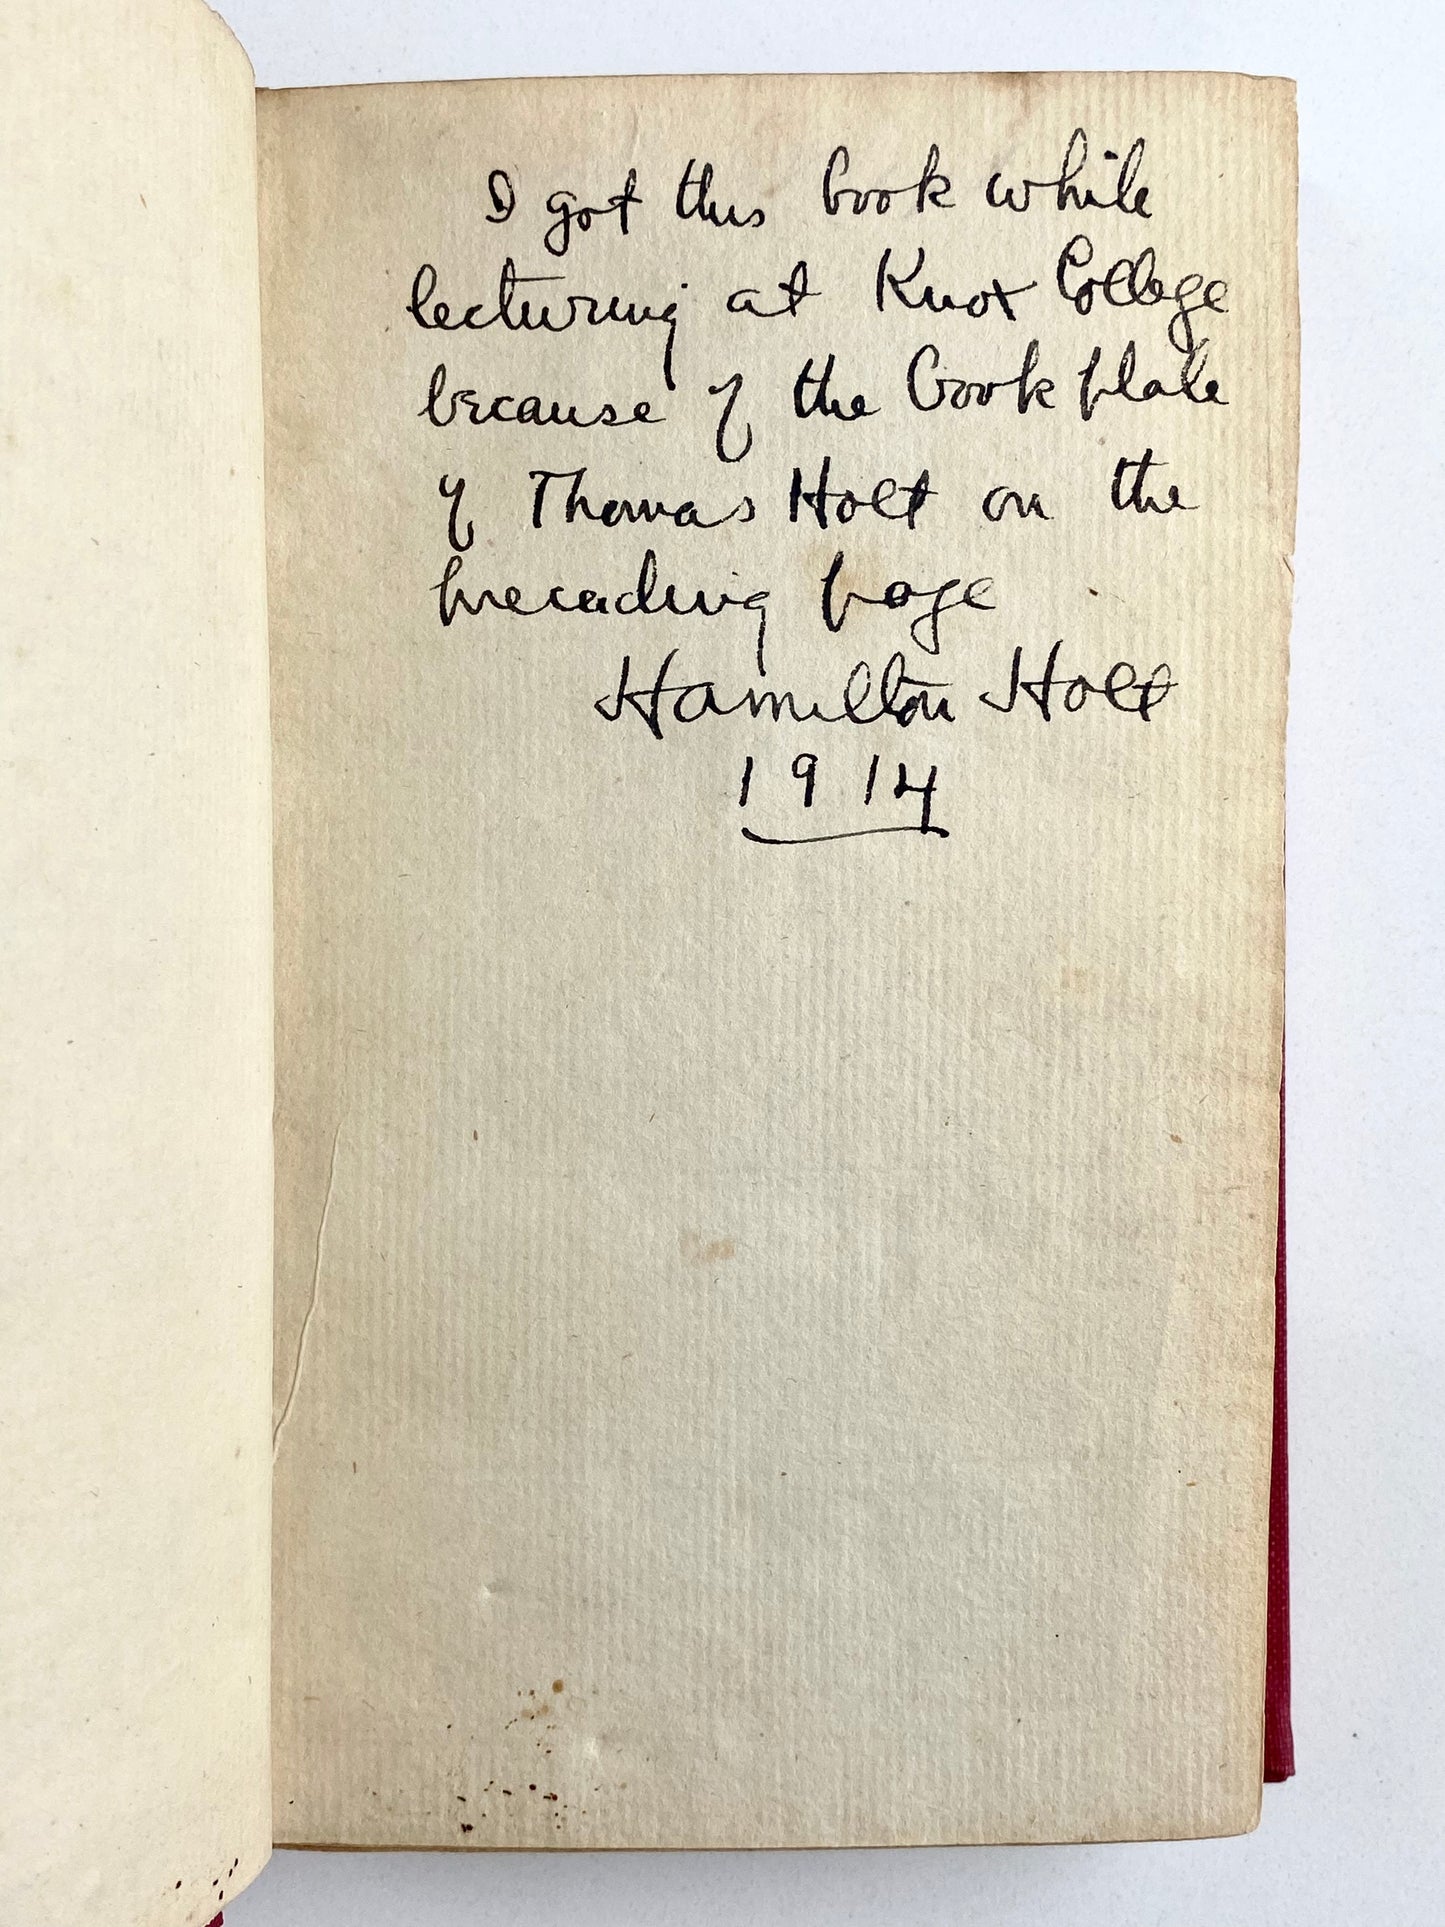 I got this book while
lecturing at Knox College
because of the book plate
of Thomas Holt on the
preceading page
Hamilton Holt
1914